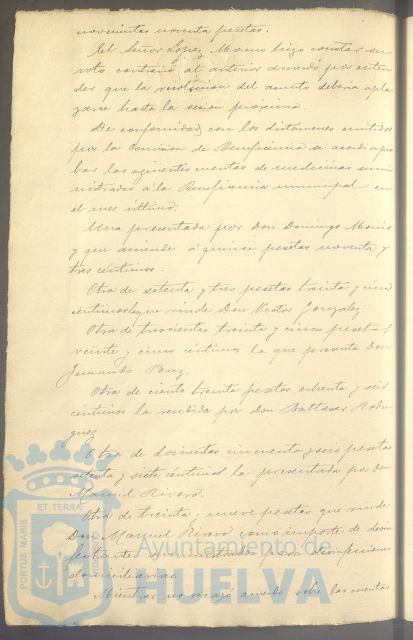 novecientas noventa pesetas.
El Señor Lopez Moreno hizo constar su
voto contrario al anterior acuerdo por enten
der que la resolucion del asunto debería apla
zarse hasta la sesion próxima.
De conformidad con los dictamenes emitidos
por la Comision de Beneficencia se acordó apro
bar las siguientes cuentas de medicinas sumi
nistradas á la Beneficencia municipal en
el mes último.
Una presentada por Don Domingo
y que asciende á quince pesetas noventa y
tres centimos.
Otra de setenta y tres pesetas treinta y cinco
centimos la que rinde Don Victor Gonzalez
Otra de trescientas treinta y cinco pesetas
veinte y cinco centimos la que presenta Don
Fernando Perez.
Otra de ciento treinta pesetas ochenta y seis
centimos la rendida por Don Baltasar Rodri
guez
Otra de doscientas cincuenta y seis pesetas
setenta y siete centimos la presentada por Don
Manuel Rivero.
Otra de treinta y nueve pesetas que rinde
Don Manuel Rivero como importe de desin
fectantes suministrados para desinfecciones
domiciliarias.
Mientras no recayó acuerdo sobre las cuentas
PORTUS MARIS
ET TERRAE
Ayuntamiento de
HUELVA